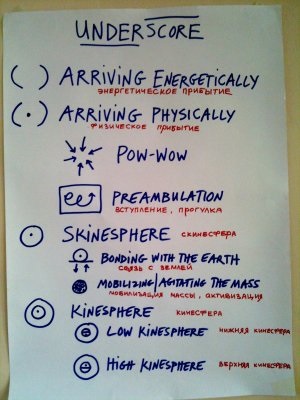 UNDERSCORE
ARRIVING ENERGETICALLY
энергетическое прибытие
ARRIVING PHYSICALLY
физическое прибытие
POW-WOW
PREAMBULATION
вступление, прогулка
SKINESPHERE скинесфера
BONDING WITH THE EARTH
связь с землей
MOBILIZING/AGITATING THE MASS
мобилизация массы, активизация
KINESPHERE кинесфера
LOW KINESPHERE нижняя кинесфера
HIGH KINESPHERE верхняя кинесфера